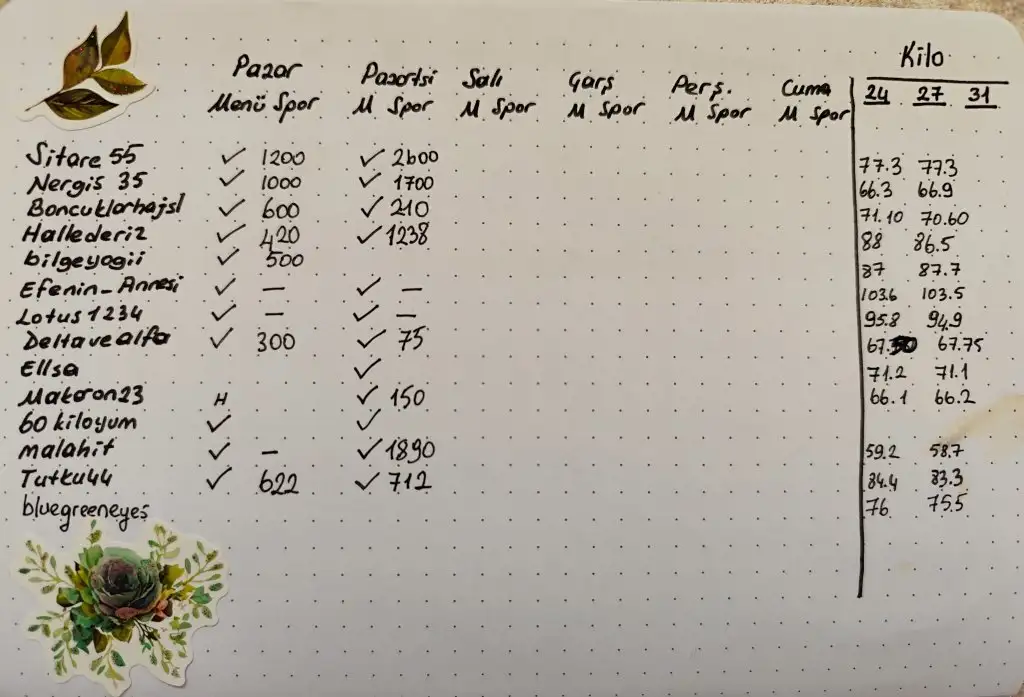 Kilo
Pazar Pazartsi Salı Çarş Perş. Cuma 24 27 31
Menü Spor M Spor M Spor M Spor M Spor M Spor
Sitare 55 ✓ 1200 ✓ 2600 77.3 77.3
Nergis 35 ✓ 1000 ✓ 1700 66.3 66.9
Boncuklarhajsl ✓ 600 ✓ 210 71.10 70.60
Hallederiz ✓ 420 ✓ 1238 88 86.5
bilgeyogii ✓ 500 87 87.7
Efenin-Annesi ✓ — ✓ — 103.6 103.5
Lotus 1234 ✓ — ✓ — 95.8 94.9
Deltavealfa ✓ 300 ✓ 75 67.50 67.75
Ellsa ✓ 71.2 71.1
Makaron23 H ✓ 150 66.1 66.2
60 kiloyum ✓ ✓
malahit ✓ — ✓ 1890 59.2 58.7
Tutku44 ✓ 622 ✓ 712 84.4 83.3
bluegreeneyes 76 75.5